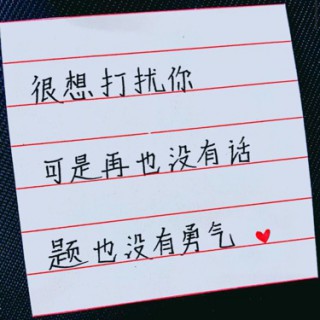 很想打扰你
可是再也没有话
题也没有勇气